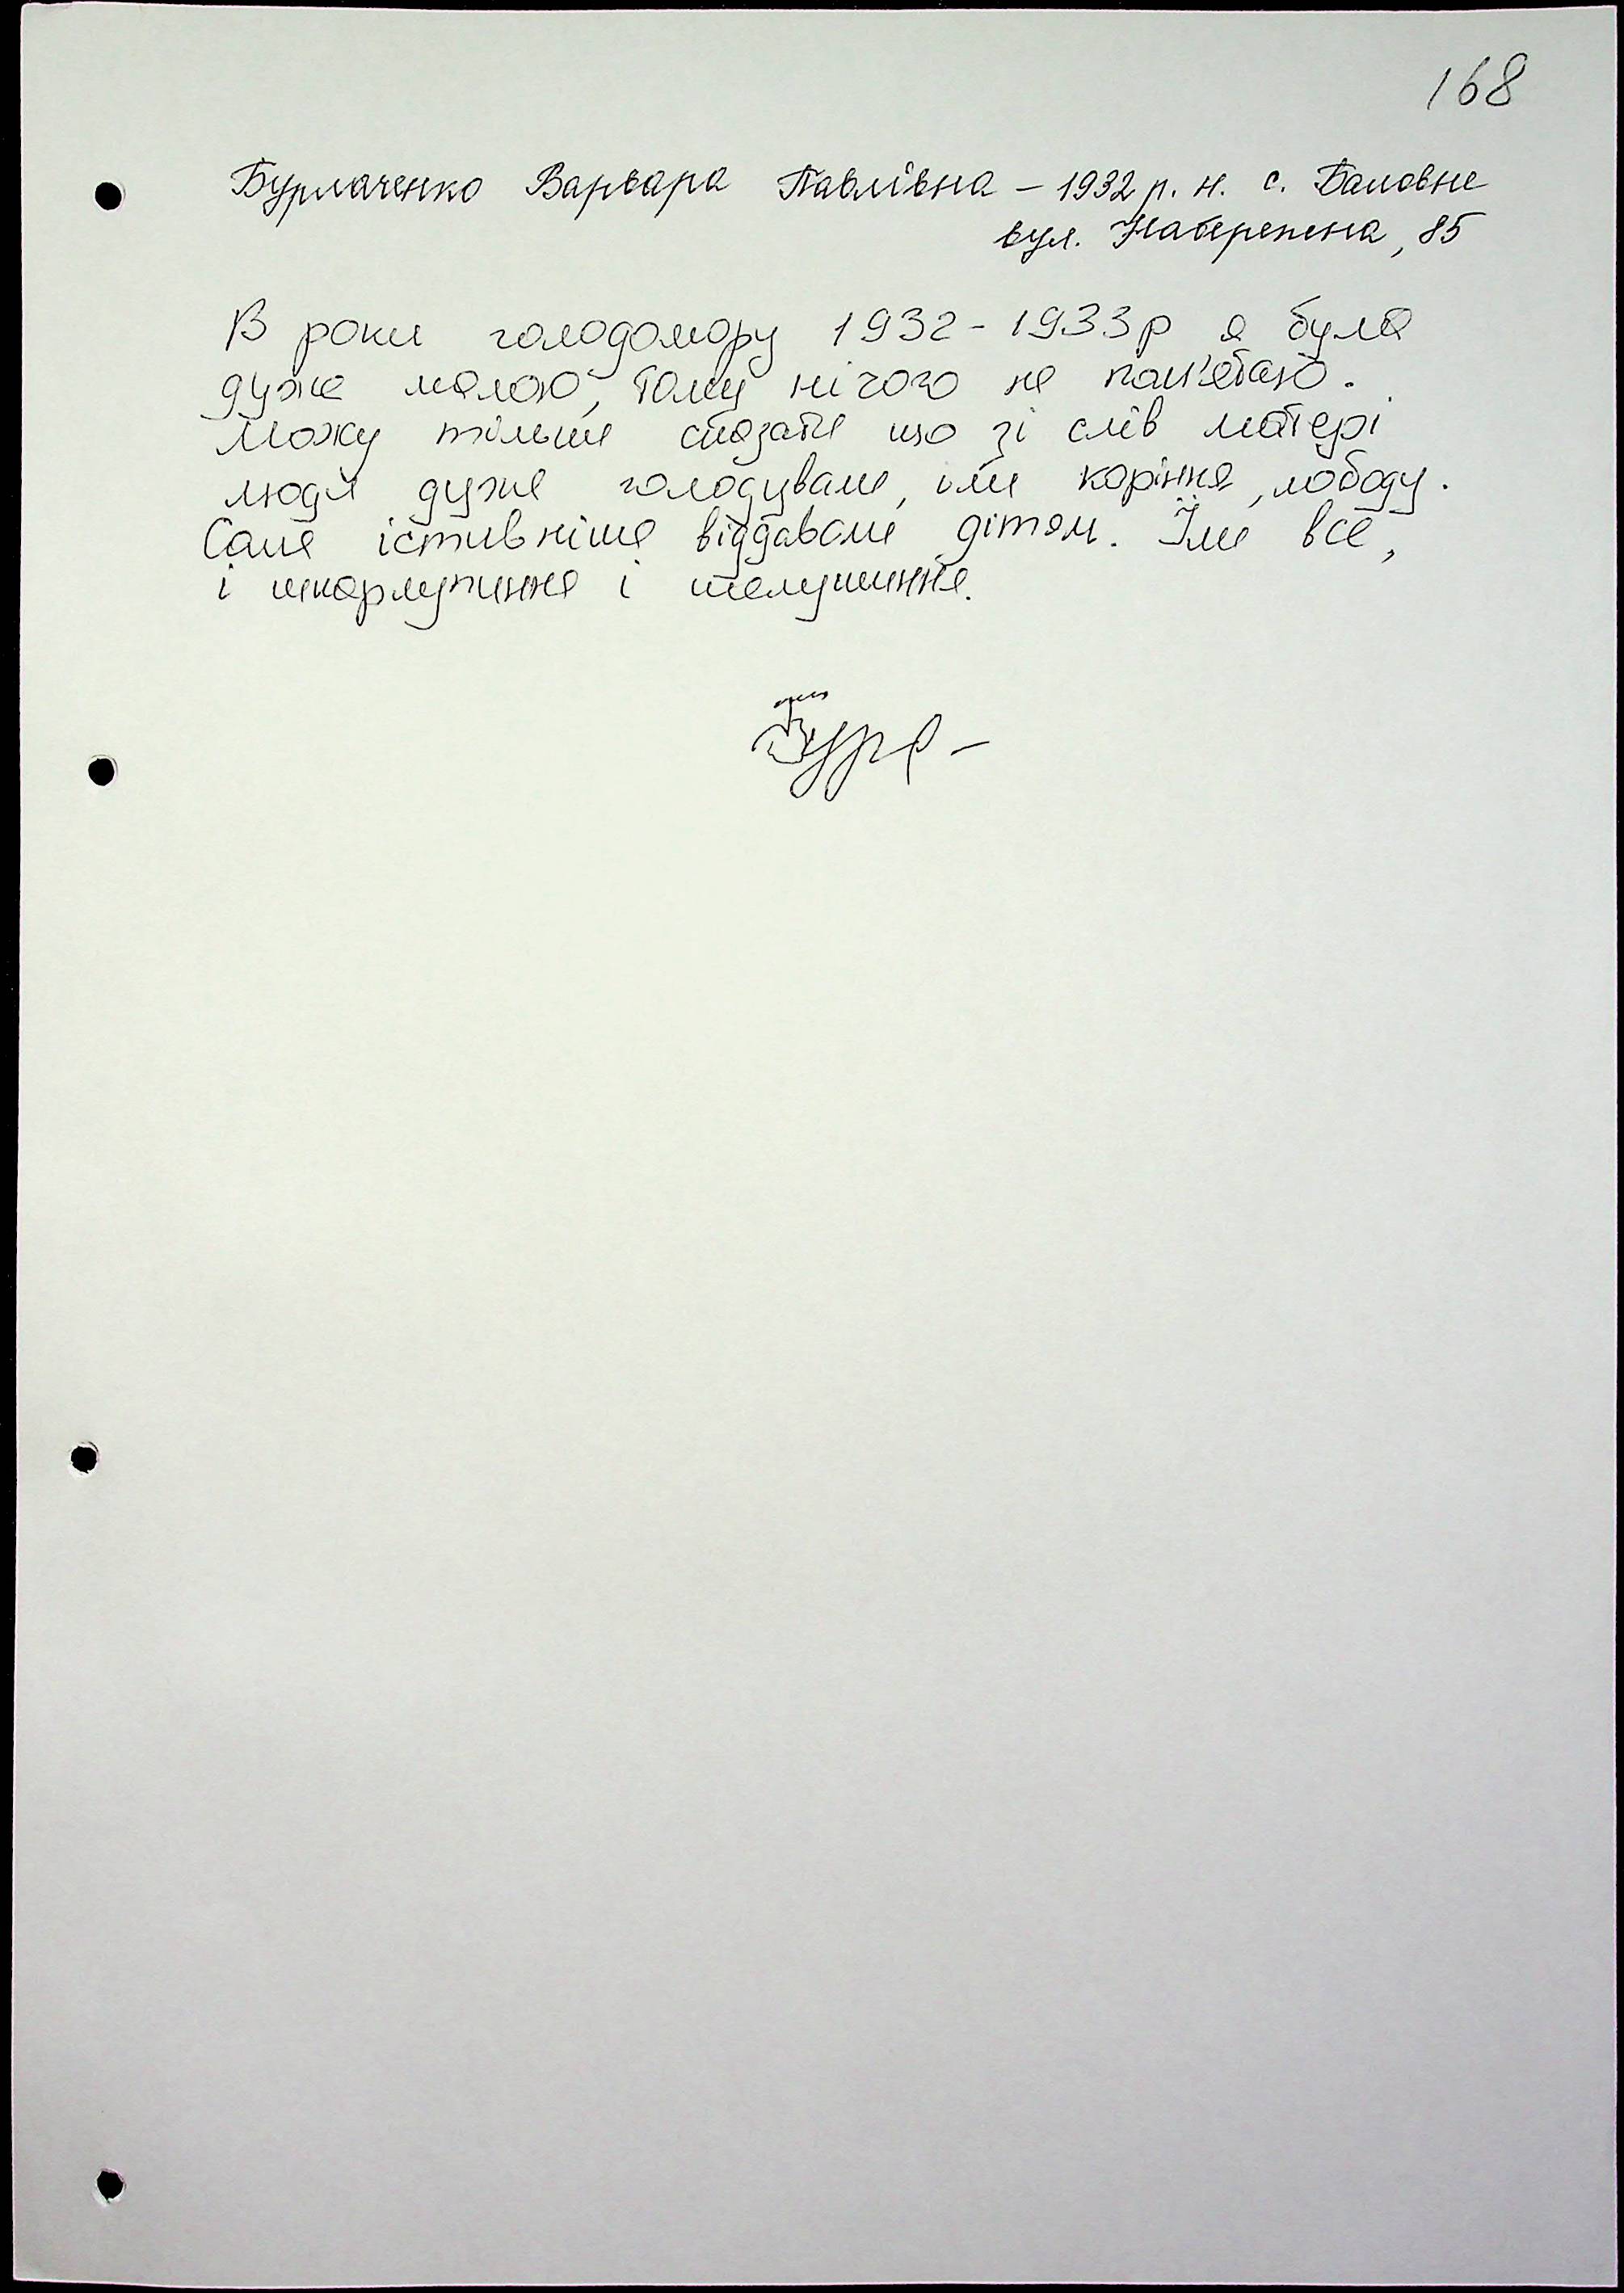 168
Бурлаченко Варвара Павлівна – 1932 р. н. с. Баловне
вул. Набережна, 85
В роки голодомору 1932-1933р я була
дуже малою, тому нічого не пам'ятаю.
Можу тільки сказати що зі слів матері
люди дуже голодували, їли коріння, лободу.
Саме істивніше віддавали дітям. Їли все,
і шкарлупиння і шелушиння.